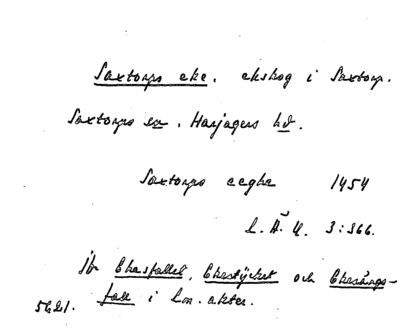 Saxtorps eke, ekskog i Saxtorp.
Saxtorps sn, Harjagers hd.
Saxtorps eeghe 1454
L.Ä.U. 3:366.
Jfr Ekesfallet, Ekestycket och Ekesångs-
fall i Lm. akter.